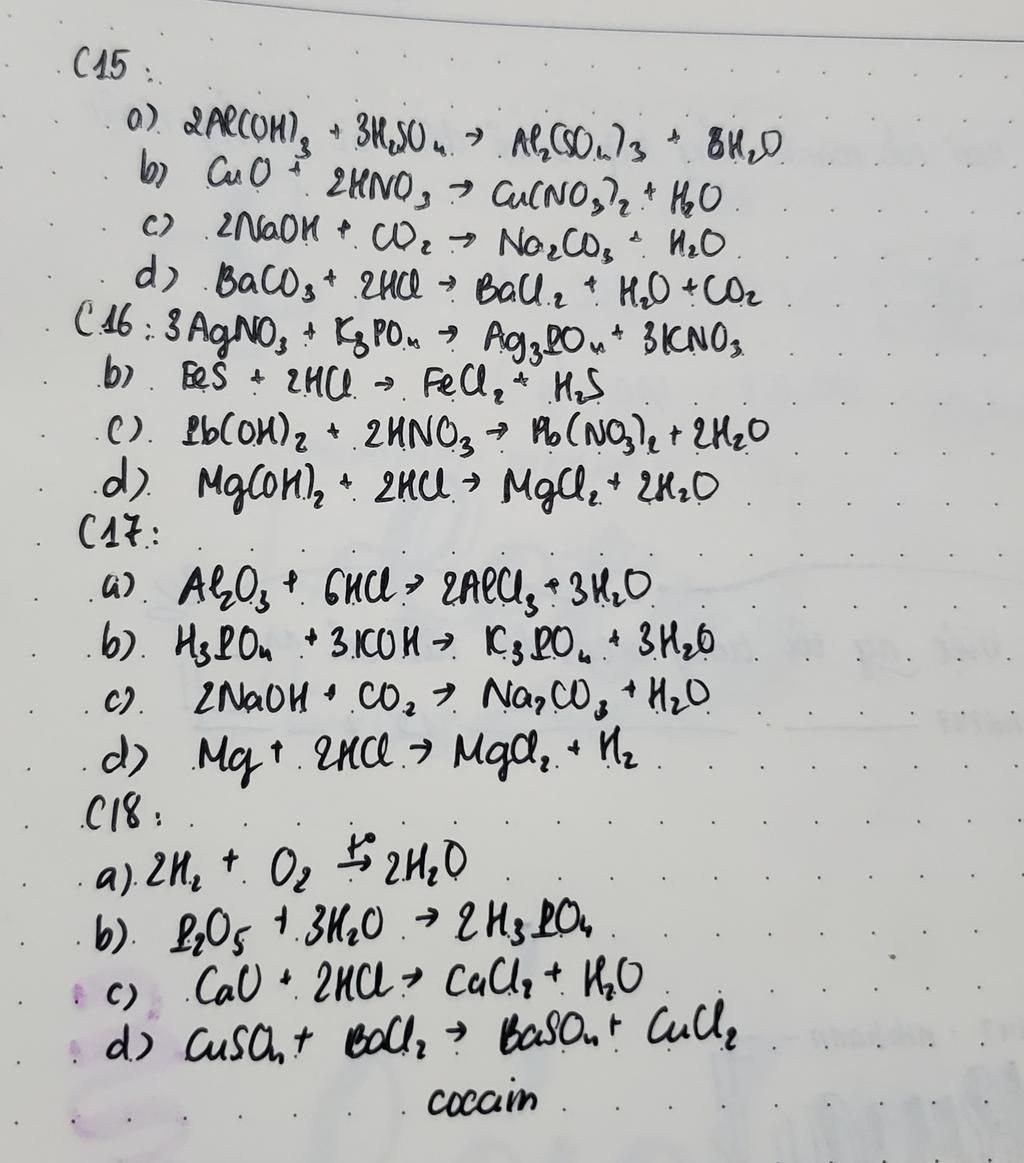 C15:
a) 2Al(OH)₃ + 3H₂SO₄ → Al₂(SO₄)₃ + 6H₂O
b) CuO + 2HNO₃ → Cu(NO₃)₂ + H₂O
c) 2NaOH + CO₂ → Na₂CO₃ + H₂O
d) BaCO₃ + 2HCl → BaCl₂ + H₂O + CO₂
C16: 3AgNO₃ + K₃PO₄ → Ag₃PO₄ + 3KNO₃
b) FeS + 2HCl → FeCl₂ + H₂S
c) Pb(OH)₂ + 2HNO₃ → Pb(NO₃)₂ + 2H₂O
d) Mg(OH)₂ + 2HCl → MgCl₂ + 2H₂O
C17:
a) Al₂O₃ + 6HCl → 2AlCl₃ + 3H₂O
b) H₃PO₄ + 3KOH → K₃PO₄ + 3H₂O
c) 2NaOH + CO₂ → Na₂CO₃ + H₂O
d) Mg + 2HCl → MgCl₂ + H₂
C18:
a) 2H₂ + O₂ t°→ 2H₂O
b) P₂O₅ + 3H₂O → 2H₃PO₄
c) CaO + 2HCl → CaCl₂ + H₂O
d) CuSO₄ + BaCl₂ → BaSO₄ + CuCl₂
cocain